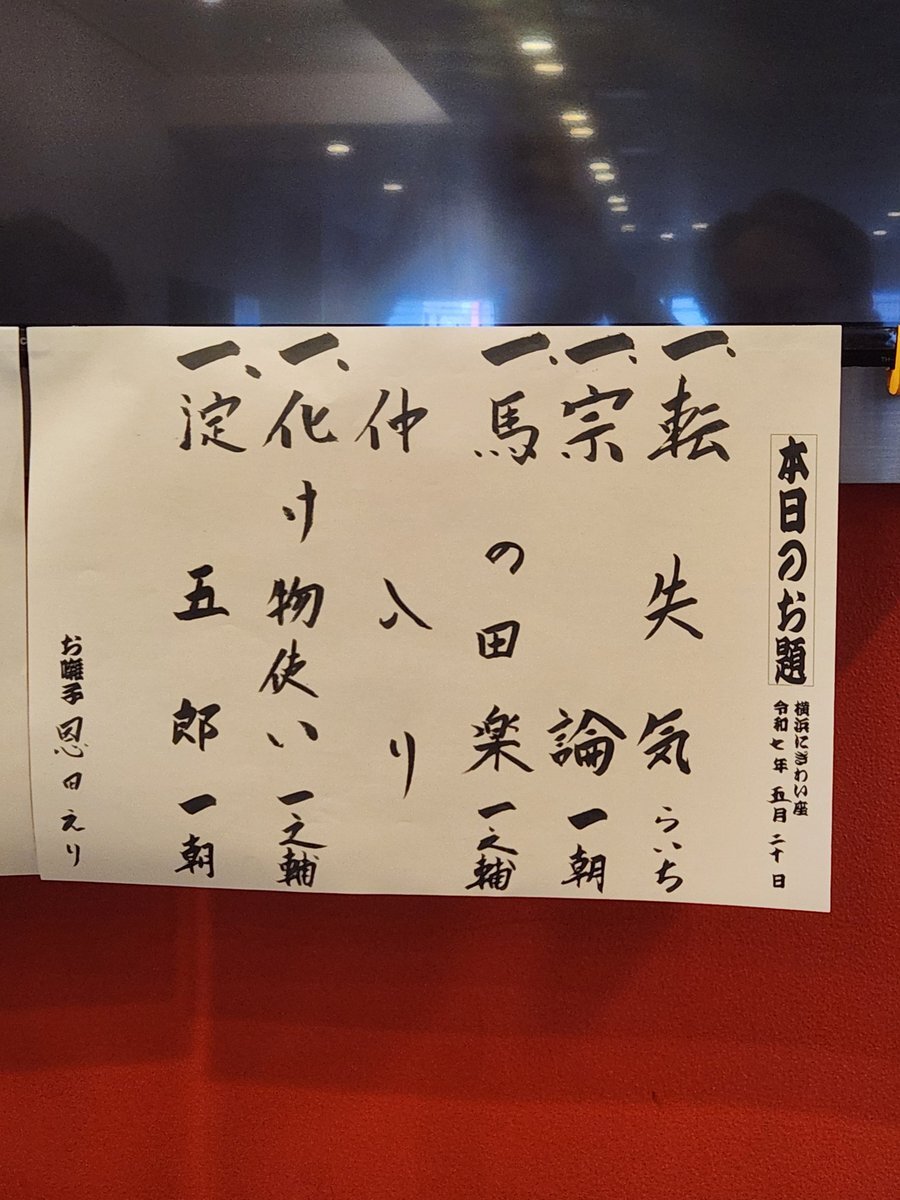 本日のお題
横浜にぎわい座
令和七年 五月 二十日
一、転失気 らいち
一、宗論 一朝
一、馬の田楽 一之輔
仲入り
一、化け物使い 一之輔
一、淀五郎 一朝
お囃子 恩田えり